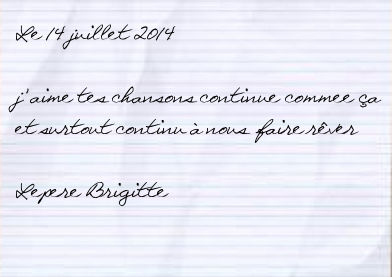 Le 14 juillet 2014
j'aime tes chansons continue commee ça
et surtout continu à nous faire rêver
Lepere Brigitte